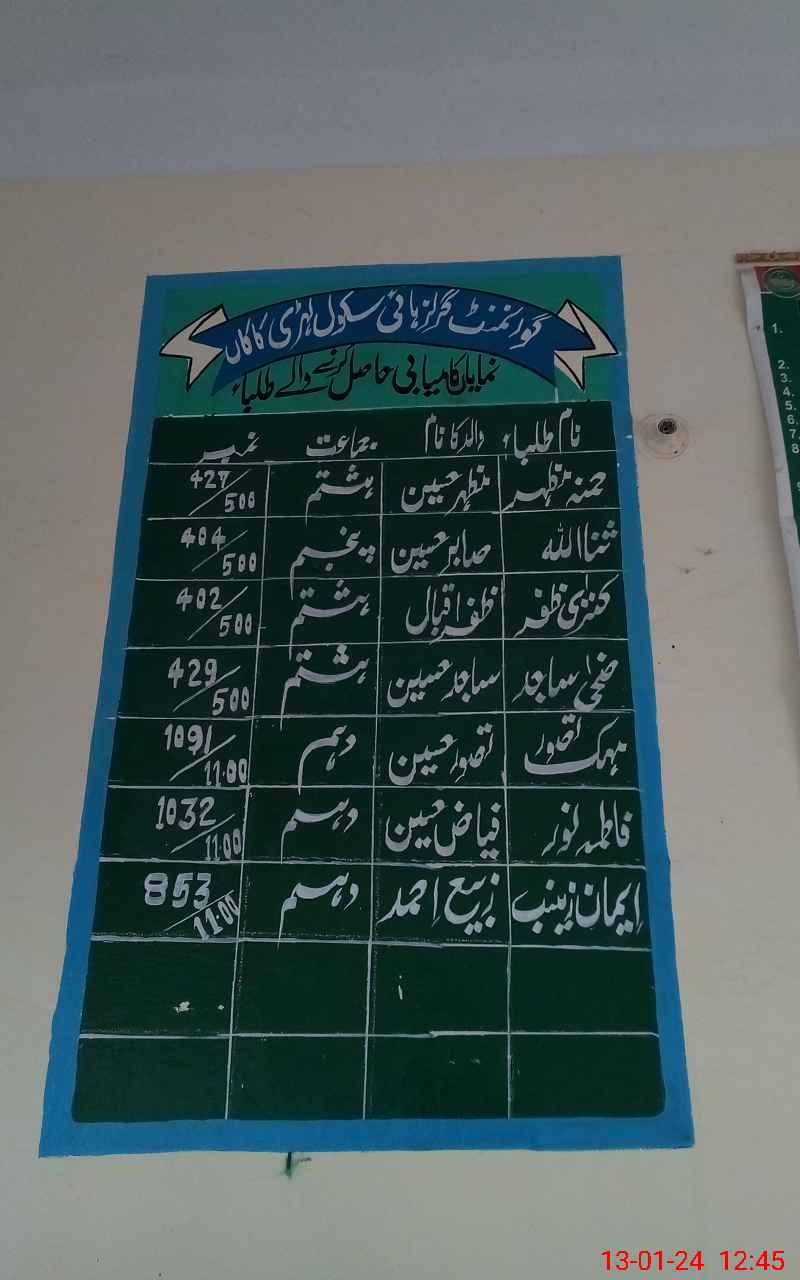 گورنمنٹ گرلز ہائی سکول لہڑی کاکاں
نمایاں کامیابی حاصل کرنے والے طلباء
نام طلباء والد کا نام جماعت نمبر
حمنہ مظہر مظہر حسین ہشتم 427/500
ثنااللہ صابر حسین پنجم 404/500
کنزی ظفر ظفر اقبال ہشتم 402/500
ضحیٰ ساجد ساجد حسین ہشتم 429/500
مہک تصور تصور حسین دہم 1091/11:00
فاطمہ نور فیاض حسین دہم 1032/11:00
ایمان زینب ربیع احمد دہم 853/11:00
1.
2.
3.
4.
5.
6.
7.
8
13-01-24 12:45